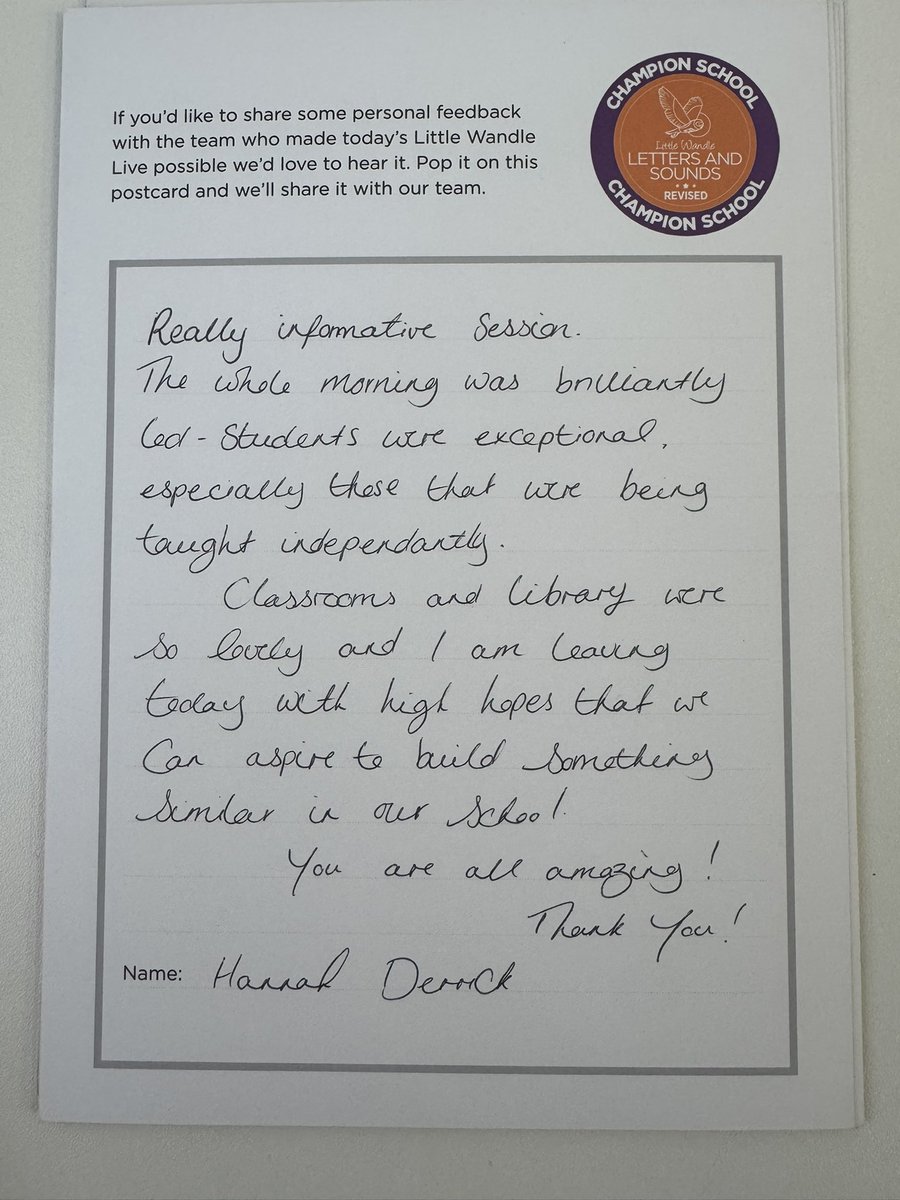 If you'd like to share some personal feedback
with the team who made today's Little Wandle
Live possible we'd love to hear it. Pop it on this
postcard and we'll share it with our team.
CHAMPION SCHOOL
Little Wandle
LETTERS AND
SOUNDS
REVISED
CHAMPION SCHOOL
Really informative Session.
The whole morning was brilliantly
led - Students were exceptional,
especially those that were being
taught independantly.
Classrooms and library were
so lovely and I am leaving
today with high hopes that we
can aspire to build something
similar in our school.
You are all amazing!
Thank You!
Name: Hannah Derrick